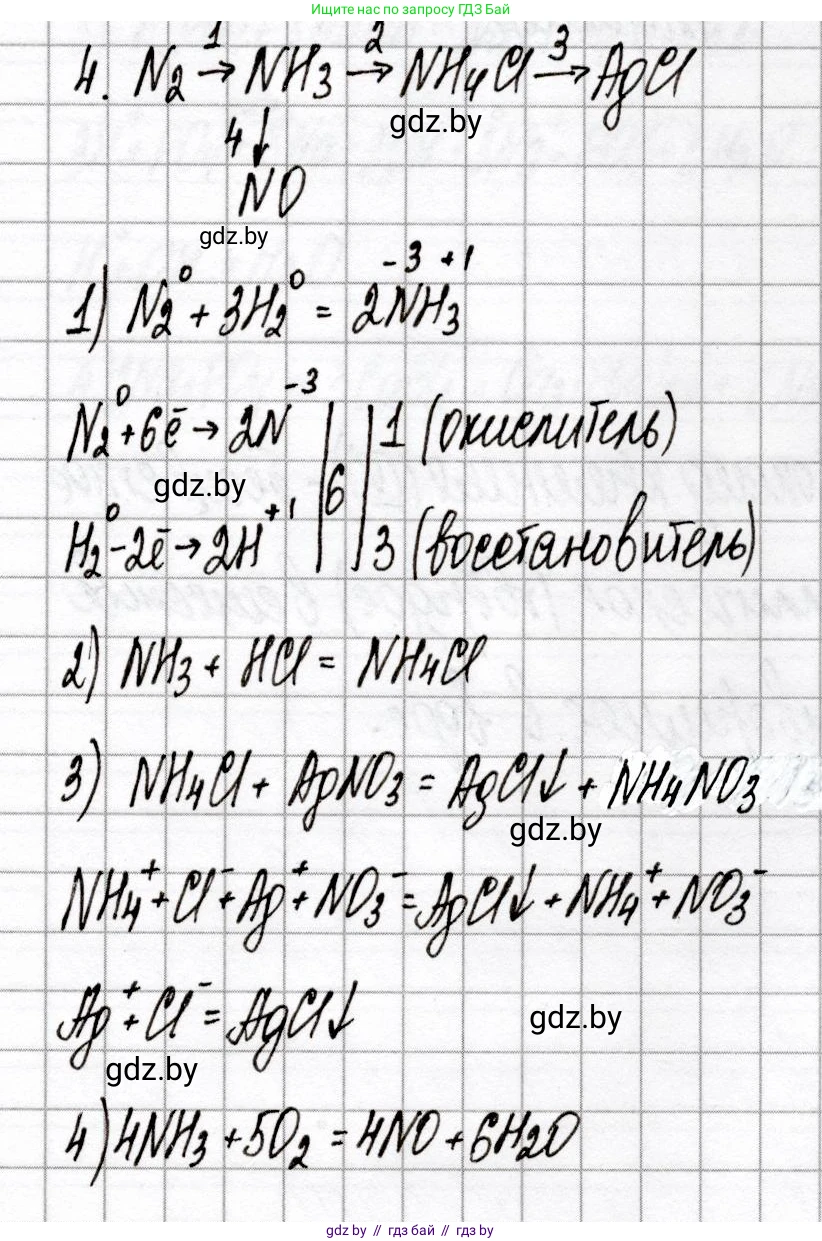 Ищите нас по запросу ГДЗ Бай
4. N₂ →¹ NH₃ →² NH₄Cl →³ AgCl
gdz.by
4↓
NO
gdz.by
1) N₂⁰ + 3H₂⁰ = 2N⁻³H₃⁺¹
N₂⁰ + 6ē → 2N⁻³ | | 1 (окислитель)
gdz.by 6
H₂⁰ - 2ē → 2H⁺¹ | | 3 (восстановитель)
2) NH₃ + HCl = NH₄Cl
3) NH₄Cl + AgNO₃ = AgCl↓ + NH₄NO₃
gdz.by
NH₄⁺ + Cl⁻ + Ag⁺ + NO₃⁻ = AgCl↓ + NH₄⁺ + NO₃⁻
Ag⁺ + Cl⁻ = AgCl↓
gdz.by
gdz.by
4) 4NH₃ + 5O₂ = 4NO + 6H₂O
gdz by // гдз бай // gdz by